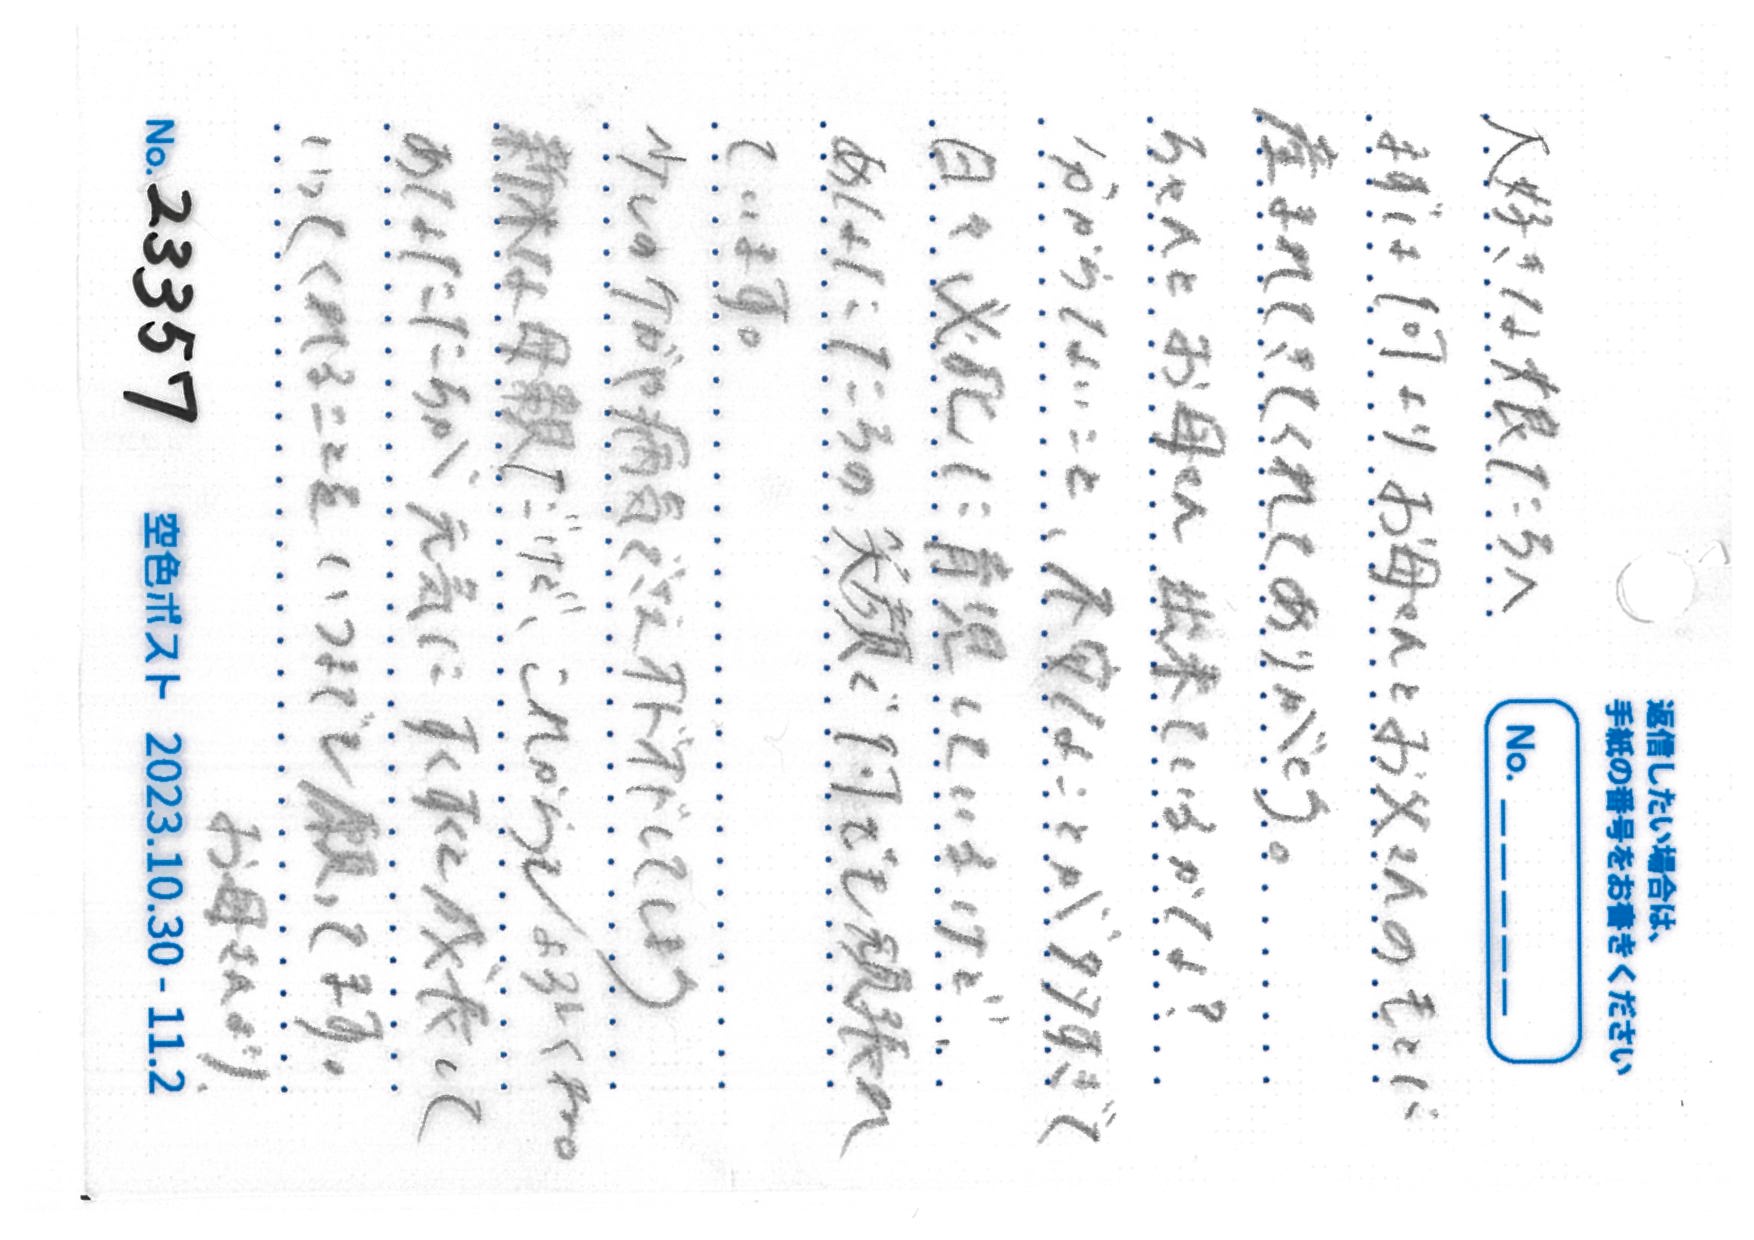 返信したい場合は、
手紙の番号をお書きください
No. _ _ _ _ _
大好きな娘たちへ
まずは何よりお母さんとお父さんのもとに
産まれてきてくれてありがとう。
ちゃんとお母さん出来ているかな?
分からないこと、不安なことが多すぎて
日々必死に育児しているけど、
あなたたちの笑顔で何でも頑張れ
ています。
少しのケガや病気でさえオドオドしてしまう
新米な母親だけど、これからもよろしくね。
あなたたちが元気にすくすくと成長して
いってくれることをいつまでも願ってます。
お母さんより
No. 23357 空色ポスト 2023.10.30 - 11.2